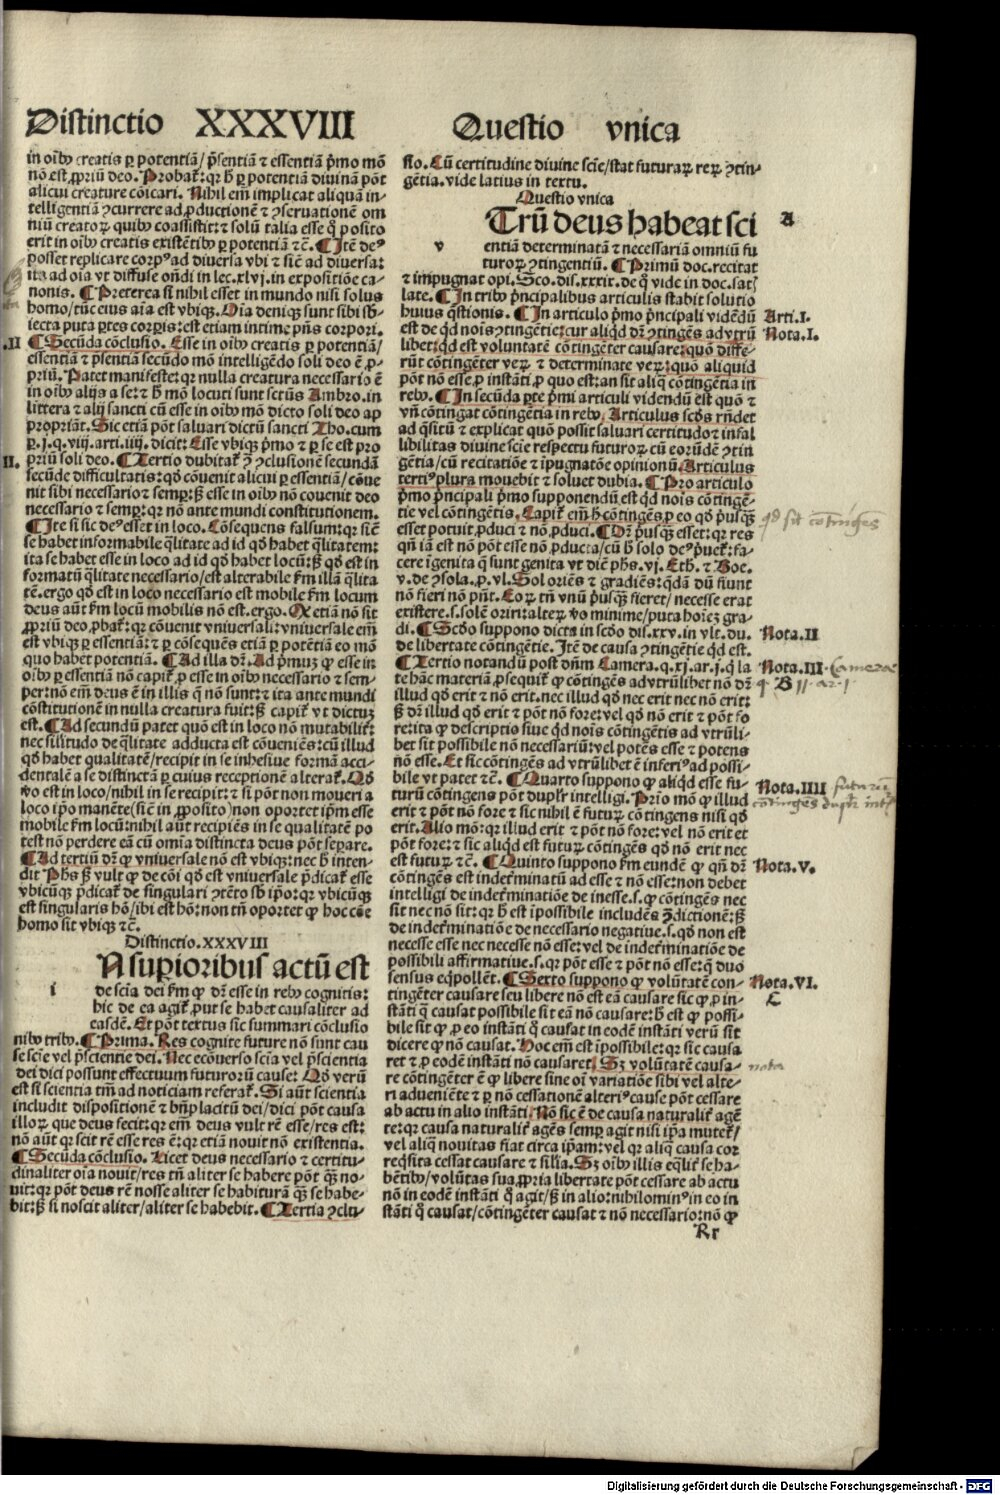 Distinctio XXXVIII
Questio vnica
in oībꝰ creatis ꝑ potentiā/ p̄sentiā ⁊ essentiā pͥmo mō
nō est ꝓpriū deo. Probat̄: qꝛ h̄ ꝑ potentiā diuinā pōt
alicui creature cōicari. Nihil em̄ implicat aliquā in-
telligentiā ꝯcurrere ad ꝓductionē ⁊ ꝯseruationē om
niū creatoꝝ quibꝰ coassistit: ⁊ solū talia esse qͥ posito
erit in oībꝰ creatis existētibꝰ ꝑ potentiā ⁊c̄. ¶ Itē deꝰ
posset replicare corpꝰ ad diuersa vbi ⁊ sic̄ ad diuersa:
ita ad oīa vt diffuse ondi in lec. xlvi. in expositiōe ca-
nonis. ¶ Preterea si nihil esset in mundo nisi solus
homo/ tūc eius aīa est vbiqꝫ. Oīa deniqꝫ sunt sibi sb̄-
iecta puta ꝑtes corꝑis: est etiam intime pn̄s corpori.
.II ¶ Secūda cōclusio. Esse in oībꝰ creatis ꝑ potentiā/
essentiā ⁊ p̄sentiā secūdo mō intelligēdo soli deo ē ꝓ-
priū. Patet manifeste: qꝛ nulla creatura necessario ē
in oībꝰ alijs a se: ⁊ h̄ mō locuti sunt seruꝰ Ambro. in
littera ⁊ alij sancti cū esse in oībꝰ mō dicto soli deo ap
propriāt. Sic etiā pōt saluari dictū sancti Tho. cum
ꝑ. j. q. viij. arti. iiij. dicit: Esse vbiqꝫ pͥmo ⁊ ꝑ se est pro
II. priū soli deo. ¶ Tertio dubitat̄ ꝯ̄ ꝯclusionē secundā
secūde difficultatis: qd̓ cōuenit alicui ꝑ essentiā/ cōue
nit sibi necessario ⁊ semp: sꝫ esse in oībꝰ nō couenit deo
necessario ⁊ semp: qꝛ nō ante mundi constitutionem.
¶ Itē si sic deꝰ esset in loco. Cōsequens falsum: qꝛ sic̄
se habet informabile qͣlitate ad id qd̓ habet qͣlitatem:
ita se habet esse in loco ad id qd̓ habet locū: sꝫ qd̓ est in
formatū qͣlitate necessario/ est alterabile ẜm illā qͣlita
tē. ergo qd̓ est in loco necessario est mobile ẜm locum
deus aūt ẜm locū mobilis nō est. ergo. Ꝙ etiā nō sit
ꝓpriū deo ꝓbat̄: qꝛ cōuenit vniuersali: vniuersale em̄
est vbiqꝫ ꝑ essentiā: ⁊ ꝑ cōsequēs etiā ꝑ potentiā eo mō
quo habet potentiā. ¶ Ad illa dr̄. Ad pͥmuꝫ ꝙ esse in
oībꝰ ꝑ essentiā nō capit̄ ꝓ esse in oībꝰ necessario ⁊ sem-
per: nō em̄ deus ē in illis q̄ nō sunt: ⁊ ita ante mundi
cōstitutionē in nulla creatura fuit: sꝫ capit̄ vt dictuꝫ
est. ¶ Ad secundū patet quō est in loco nō mutabilit̄:
nec silitudo de qͣlitate adducta est cōueniēs: cū illud
qd̓ habet qualitatē/ recipit in se inhesiue formā acci-
dentalē a se distinctā ꝑ cuius receptionē alterat̄. Qd̓
v̓o est in loco/ nihil in se recipit: ⁊ si pōt non moueri a
loco ip̄o manēte (sic̄ in ꝓposito) non oportet ip̄m esse
mobile ẜm locū: nihil aūt recipiēs in se qualitatē po
test nō perdere eā cū omīa distincta deus pōt seꝑare.
¶ Ad tertiū dr̄ ꝙ vniuersale nō est vbiqꝫ: nec h̄ inten-
dit Ph̄s sꝫ vult ꝙ de cōi qd̓ est vniuersale p̄dicat̄ esse
vbicūqꝫ p̄dicat̄ de singulari ꝯtēto sb̄ ip̄o: qꝛ vbicūqꝫ
est singularis hō/ ibi est hō: non tn̄ oportet ꝙ hoc cōe
homo sit vbiqꝫ ⁊c̄.
Distinctio. XXXVIII
i N suꝑioribus actū est
de scīa dei ẜm ꝙ dr̄ esse in rebꝰ cognitis:
hic de ea agit̄ ꝓut se habet causaliter ad
easdē. Et pōt textus sic summari cōclusio
nibꝰ tribꝰ. ¶ Prima. Res cognite future nō sunt cau
se scīe vel p̄scientie dei. Nec ecōuerso scīa vel p̄scientia
dei dici possunt effectuum futuroꝝ cause: Qd̓ verū
est si scientia tm̄ ad noticiam referat̄. Si aūt scientia
includit dispositionē ⁊ bn̄placitū dei/ dici pōt causa
illoꝝ que deus fecit: qꝛ em̄ deus vult rē esse/ res est:
nō aūt qꝛ scit rē esse res ē: qꝛ etiā nouit nō existentia.
¶ Secūda cōclusio. Licet deus necessario ⁊ certitu-
dinaliter oīa nouit/ res tn̄ aliter se habere pōt qͣꝫ no-
uit: qꝛ pōt deus rē nosse aliter se habiturā qͣꝫ se habe-
bit: sꝫ si noscit aliter/ aliter se habebit. ¶ Tertia ꝯclu-
sio. Cū certitudine diuine scīe/ stat futuraꝝ reꝝ ꝯtin-
gētia. vide latius in textu.
Questio vnica
v Trū deus habeat sci A
entiā determinatā ⁊ necessariā omniū fu
turoꝝ ꝯtingentiū. ¶ Primū doc. recitat
⁊ impugnat opi. Sco. dis. xxxix. de q̄ vide in doc. sat̄
late. ¶ In tribꝰ pͥncipalibus articulis stabit solutio
huius qͣstionis. ¶ In articulo pͥmo pͥncipali vidēdū Arti. I.
est de qͥd nōis ꝯtingētie: cur aliqͥd dr̄ ꝯtingēs ad vtrū Nota. I.
libet: qͥd est voluntatē cōtingēter causare: quō diffe-
rūt cōtingēter veꝝ ⁊ determinate veꝝ: quō aliquid
pōt nō esse ꝓ instāti ꝓ quo est: an sit aliqͣ cōtingētia in
rebꝰ. ¶ In secūda ꝑte pͥmi articuli videndū est quō ⁊
vn̄ contingat cōtingētia in rebꝰ. Articulus scd̓s rn̄det
ad qͣsitū ⁊ explicat quō possit saluari certitudo ⁊ infal
libilitas diuine scīe respectu futuroꝝ cū eorūdē ꝯtin
gētia/ cū recitatiōe ⁊ īpugnatōe opinionū. Articulus
tertiꝰ plura mouebit ⁊ soluet dubia. ¶ Pro articulo
pͥmo pͥncipali pͥmo supponendū est qͥd nōis contingē-
tie vel cōtingētis. Capit̄ em̄ h̄ cōtingēs ꝓ eo qd̓ pͥusqͣꝫ qd sit contingens
esset potuit ꝓduci ⁊ nō ꝓduci. ¶ Dꝛ̄ pͥusqͣꝫ esset: qꝛ res
qn̄ iā est nō pōt esse nō ꝓducta/ cū h̄ solo deꝰ pͥuet̄: fa-
cere īgenita q̄ sunt genita vt dic̄ ph̄s. vj. Eth. ⁊ Boe.
v. de ꝯsola. ꝓ. vl. Sol oriēs ⁊ gradiēs: qͣdā dū fiunt
nō fieri nō pn̄t. Eoꝝ tn̄ vnū pͥusqͣꝫ fieret/ necesse erat
existere. s. solē oriri: alteꝝ v̓o minime/ puta hoīeꝫ gra-
di. ¶ Scd̓o suppono dicta in scd̓o dis. xxv. in vlt. du. Nota. II
de libertate cōtingētie. Itē de causa ꝯtingētie qͥd est.
¶ Tertio notandū post dn̄m Camera. q. xj. ar. j. qͥ la Nota. III. Camerac.
te hāc materiā ꝓsequit̄ ꝙ cōtingēs ad vtrūlibet nō dr̄ B q. 11 ar. 1
illud qd̓ erit ⁊ nō erit. nec illud qd̓ nec erit nec nō erit:
sꝫ dr̄ illud qd̓ erit ⁊ pōt nō fore: vel qd̓ nō erit ⁊ pōt fo
re: ita ꝙ descriptio siue qͥd nōis cōtingētis ad vtrūli-
bet sit possibile nō necessariū: vel potēs esse ⁊ potens
nō esse. Et sic cōtingēs ad vtrūlibet ē inferiꝰ ad possi-
bile vt patet ⁊c̄. ¶ Quarto suppono ꝙ aliqͥd esse fu- Nota. IIII
turū cōtingens pōt duplr̄ intelligi. Prīo mō ꝙ illud
erit ⁊ pōt nō fore ⁊ sic nihil ē futuꝝ cōtingens nisi qd̓
erit. Alio mō: qꝛ illud erit ⁊ pōt nō fore: vel nō erit et
pōt fore: ⁊ sic aliqͥd est futuꝝ cōtingēs qd̓ nō erit nec
est futuꝝ ⁊c̄. ¶ Quinto suppono ẜm eundē ꝙ qn̄ dr̄ Nota. V.
cōtingēs est indet̓minatū ad esse ⁊ nō esse: non debet
intelligi de indet̓minatiōe de inesse. s. ꝙ cōtingēs nec
sit nec nō sit: qꝛ h̄ est īpossibile includēs ꝯ̄dictionē: sꝫ
de indet̓minatiōe de necessario negatiue. s. qd̓ non est
necesse esse nec necesse nō esse: vel de indet̓minatiōe de
possibili affirmatiue. s. qꝛ pōt esse ⁊ pōt nō esse: qͥ duo
sensus eqͥpollēt. ¶ Sexto suppono ꝙ volūtatē con- Nota. VI.
tingēter causare seu libere nō est eā causare sic ꝙ ꝓ in- C
stāti q̄ causat possibile sit eā nō causare: h̄ est ꝙ possi-
bile sit ꝙ ꝓ eo instāti q̄ causat in eodē instāti verū sit
dicere ꝙ nō causat. Hoc em̄ est īpossibile: qꝛ sic causa
ret ⁊ ꝓ eodē instāti nō causaret. Sꝫ volūtatē causa- nota
re cōtingēter ē ꝙ libere sine oī variatiōe sibi vel alte-
ri adueniēte ⁊ ꝑ nō cessationē alteriꝰ cause pōt cessare
ab actu in alio instāti. Nō sic ē de causa naturalit̄ agē
te: qꝛ causa naturalit̄ agēs semꝑ agit nisi ip̄a mutet̄/
vel aliq̄ nouitas fiat circa ip̄am: vel qꝛ aliq̄ causa cor
reqͥsita cessat causare ⁊ silia. Sꝫ oībꝰ illis eqͣlit̄ se ha-
bētibꝰ/ volūtas sua ꝓpria libertate pōt cessare ab actu
nō in eodē instāti q̄ agit/ sꝫ in alio: nihilominꝰ in eo in
stāti q̄ causat/ cōtingēter causat ⁊ nō necessario: nō ꝙ
Rr
Digitalisierung gefördert durch die Deutsche Forschungsgemeinschaft - DFG